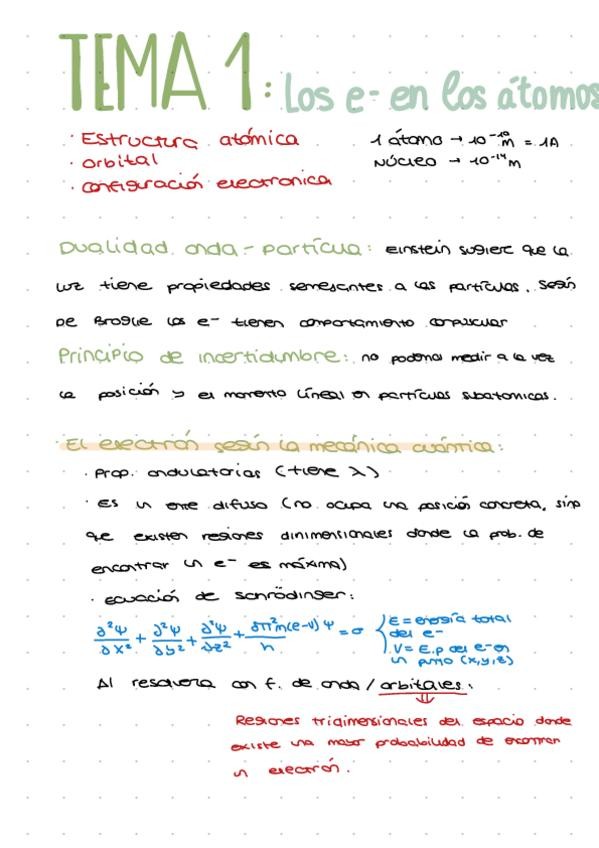 TEMA 1: Los e- en los átomos
· Estructura atómica
· orbital
· configuración electronica
1 átomo → 10⁻¹⁰ m = 1A
Núcleo → 10⁻¹⁴ m
Dualidad onda-partícula: Einstein sugiere que la
luz tiene propiedades semejantes a las partículas. Según
De Broglie los e- tienen comportamiento corpuscular
Principio de incertidumbre: no podemos medir a la vez
la posición y el momento lineal en partículas subatomicas.
· El electrón según la mecánica cuántica:
· Prop. ondulatorias (tiene λ)
· Es un ente difuso (no ocupa una posición concreta, sino
que existen regiones dinimensionales donde la prob. de
encontrar un e- es máxima)
· ecuación de schrödinger:
∂²Ψ/∂x² + ∂²Ψ/∂y² + ∂²Ψ/∂z² + 8π²m(e-v)Ψ/h = 0
E = energía total
del e-
V = E.p del e- en
un punto (x,y,z)
Al resolverla con f. de onda / orbitales:
Regiones tridimensionales del espacio donde
existe una mayor probabilidad de encontrar
un electrón.